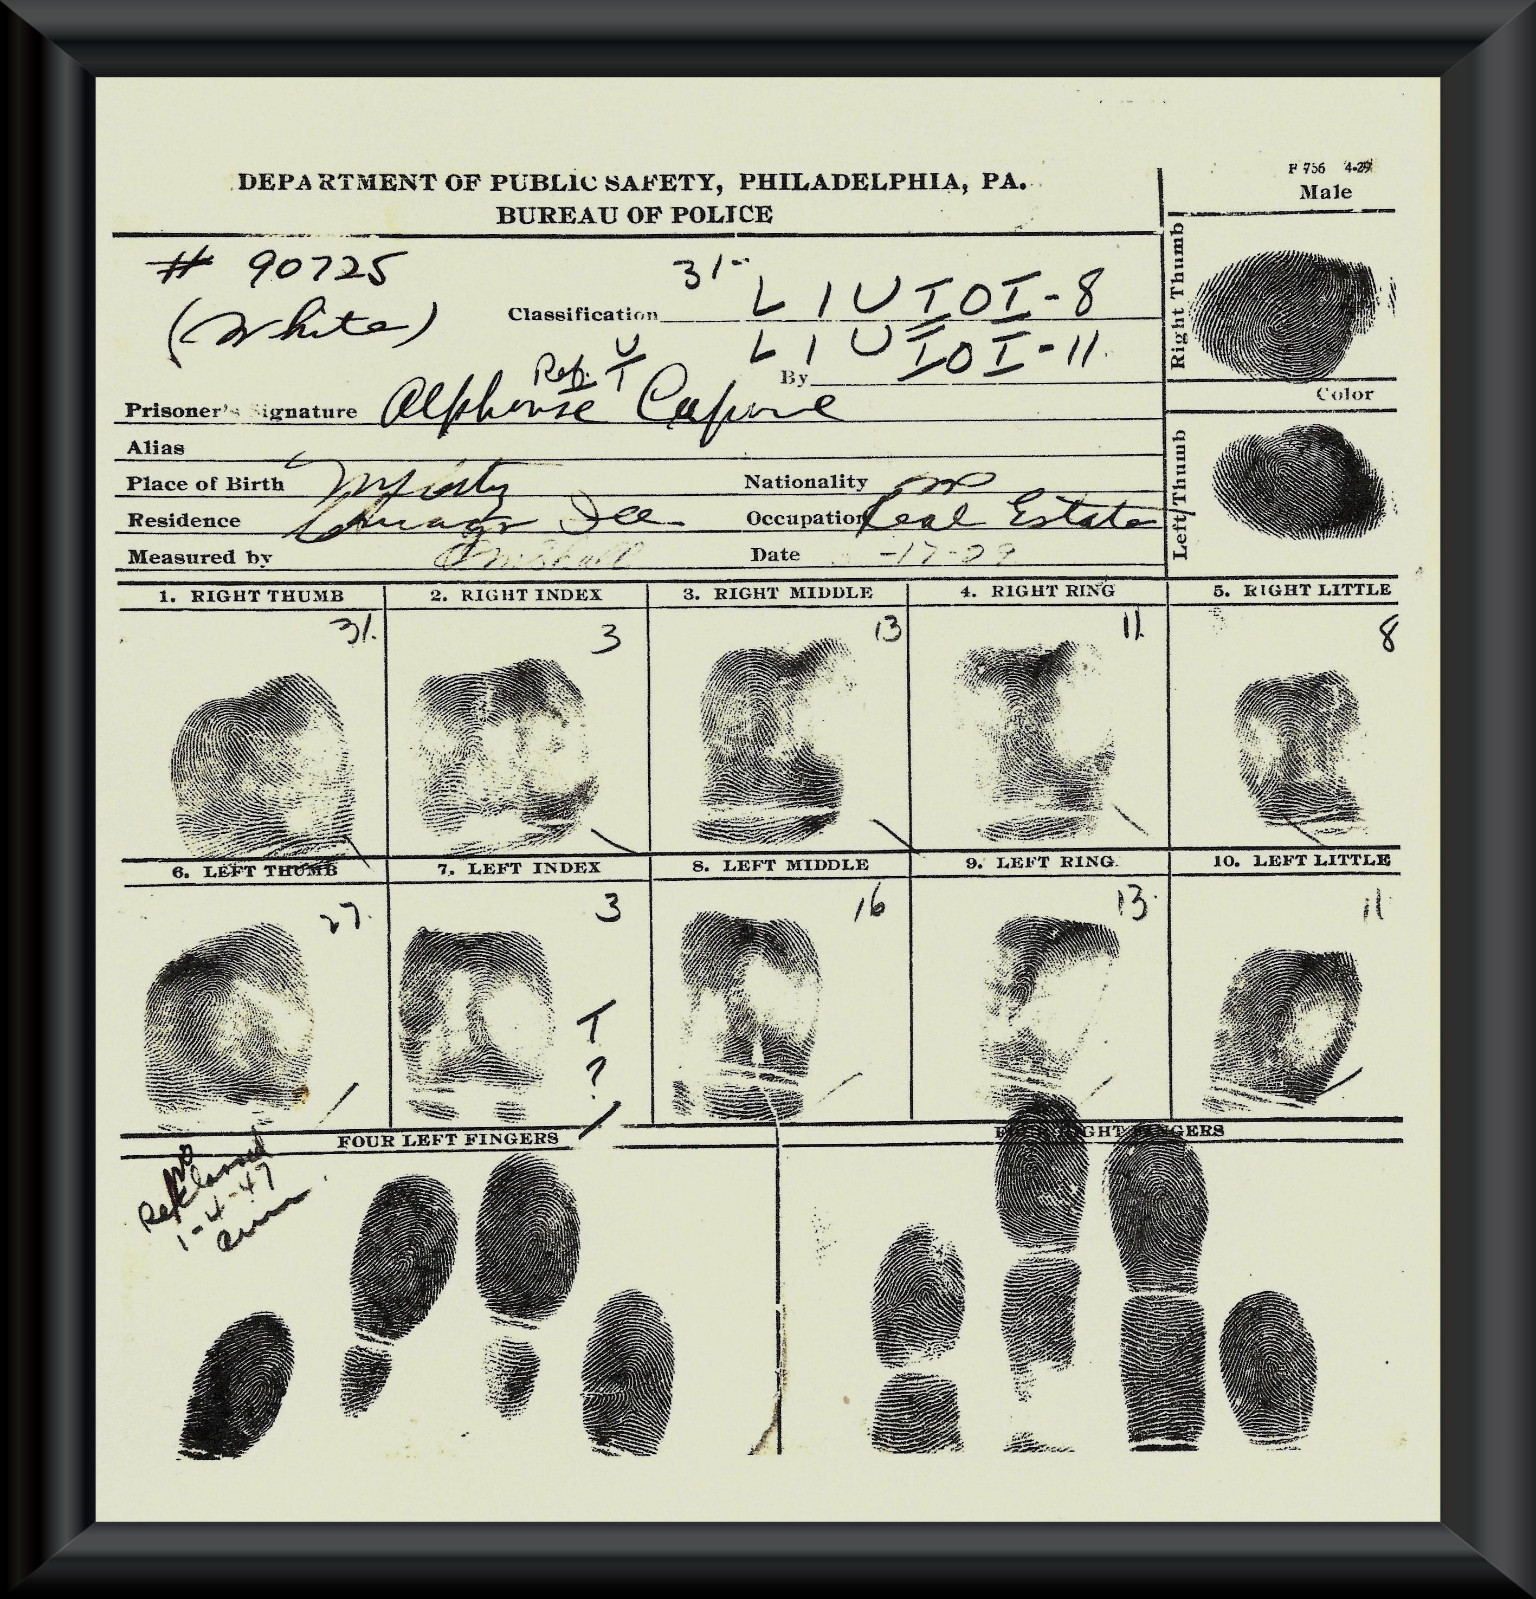 F 756 4-29
Male
DEPARTMENT OF PUBLIC SAFETY, PHILADELPHIA, PA.
BUREAU OF POLICE
# 90725
(White)
31-
Classification L 1 U I O I - 8
L 1 U I O I - 11
Ref. U
T
By
Prisoner's Signature Alphonse Capone
Alias
Place of Birth
Nationality
Residence Chicago Ill
Occupation Real Estate
Measured by
Date -17-29
Right Thumb
Color
Left Thumb
1. RIGHT THUMB 2. RIGHT INDEX 3. RIGHT MIDDLE 4. RIGHT RING 5. RIGHT LITTLE
31. 3 13 11 8
6. LEFT THUMB 7. LEFT INDEX 8. LEFT MIDDLE 9. LEFT RING. 10. LEFT LITTLE
27. 3 16 13 11
T
?
FOUR LEFT FINGERS FOUR RIGHT FINGERS
1-4-47